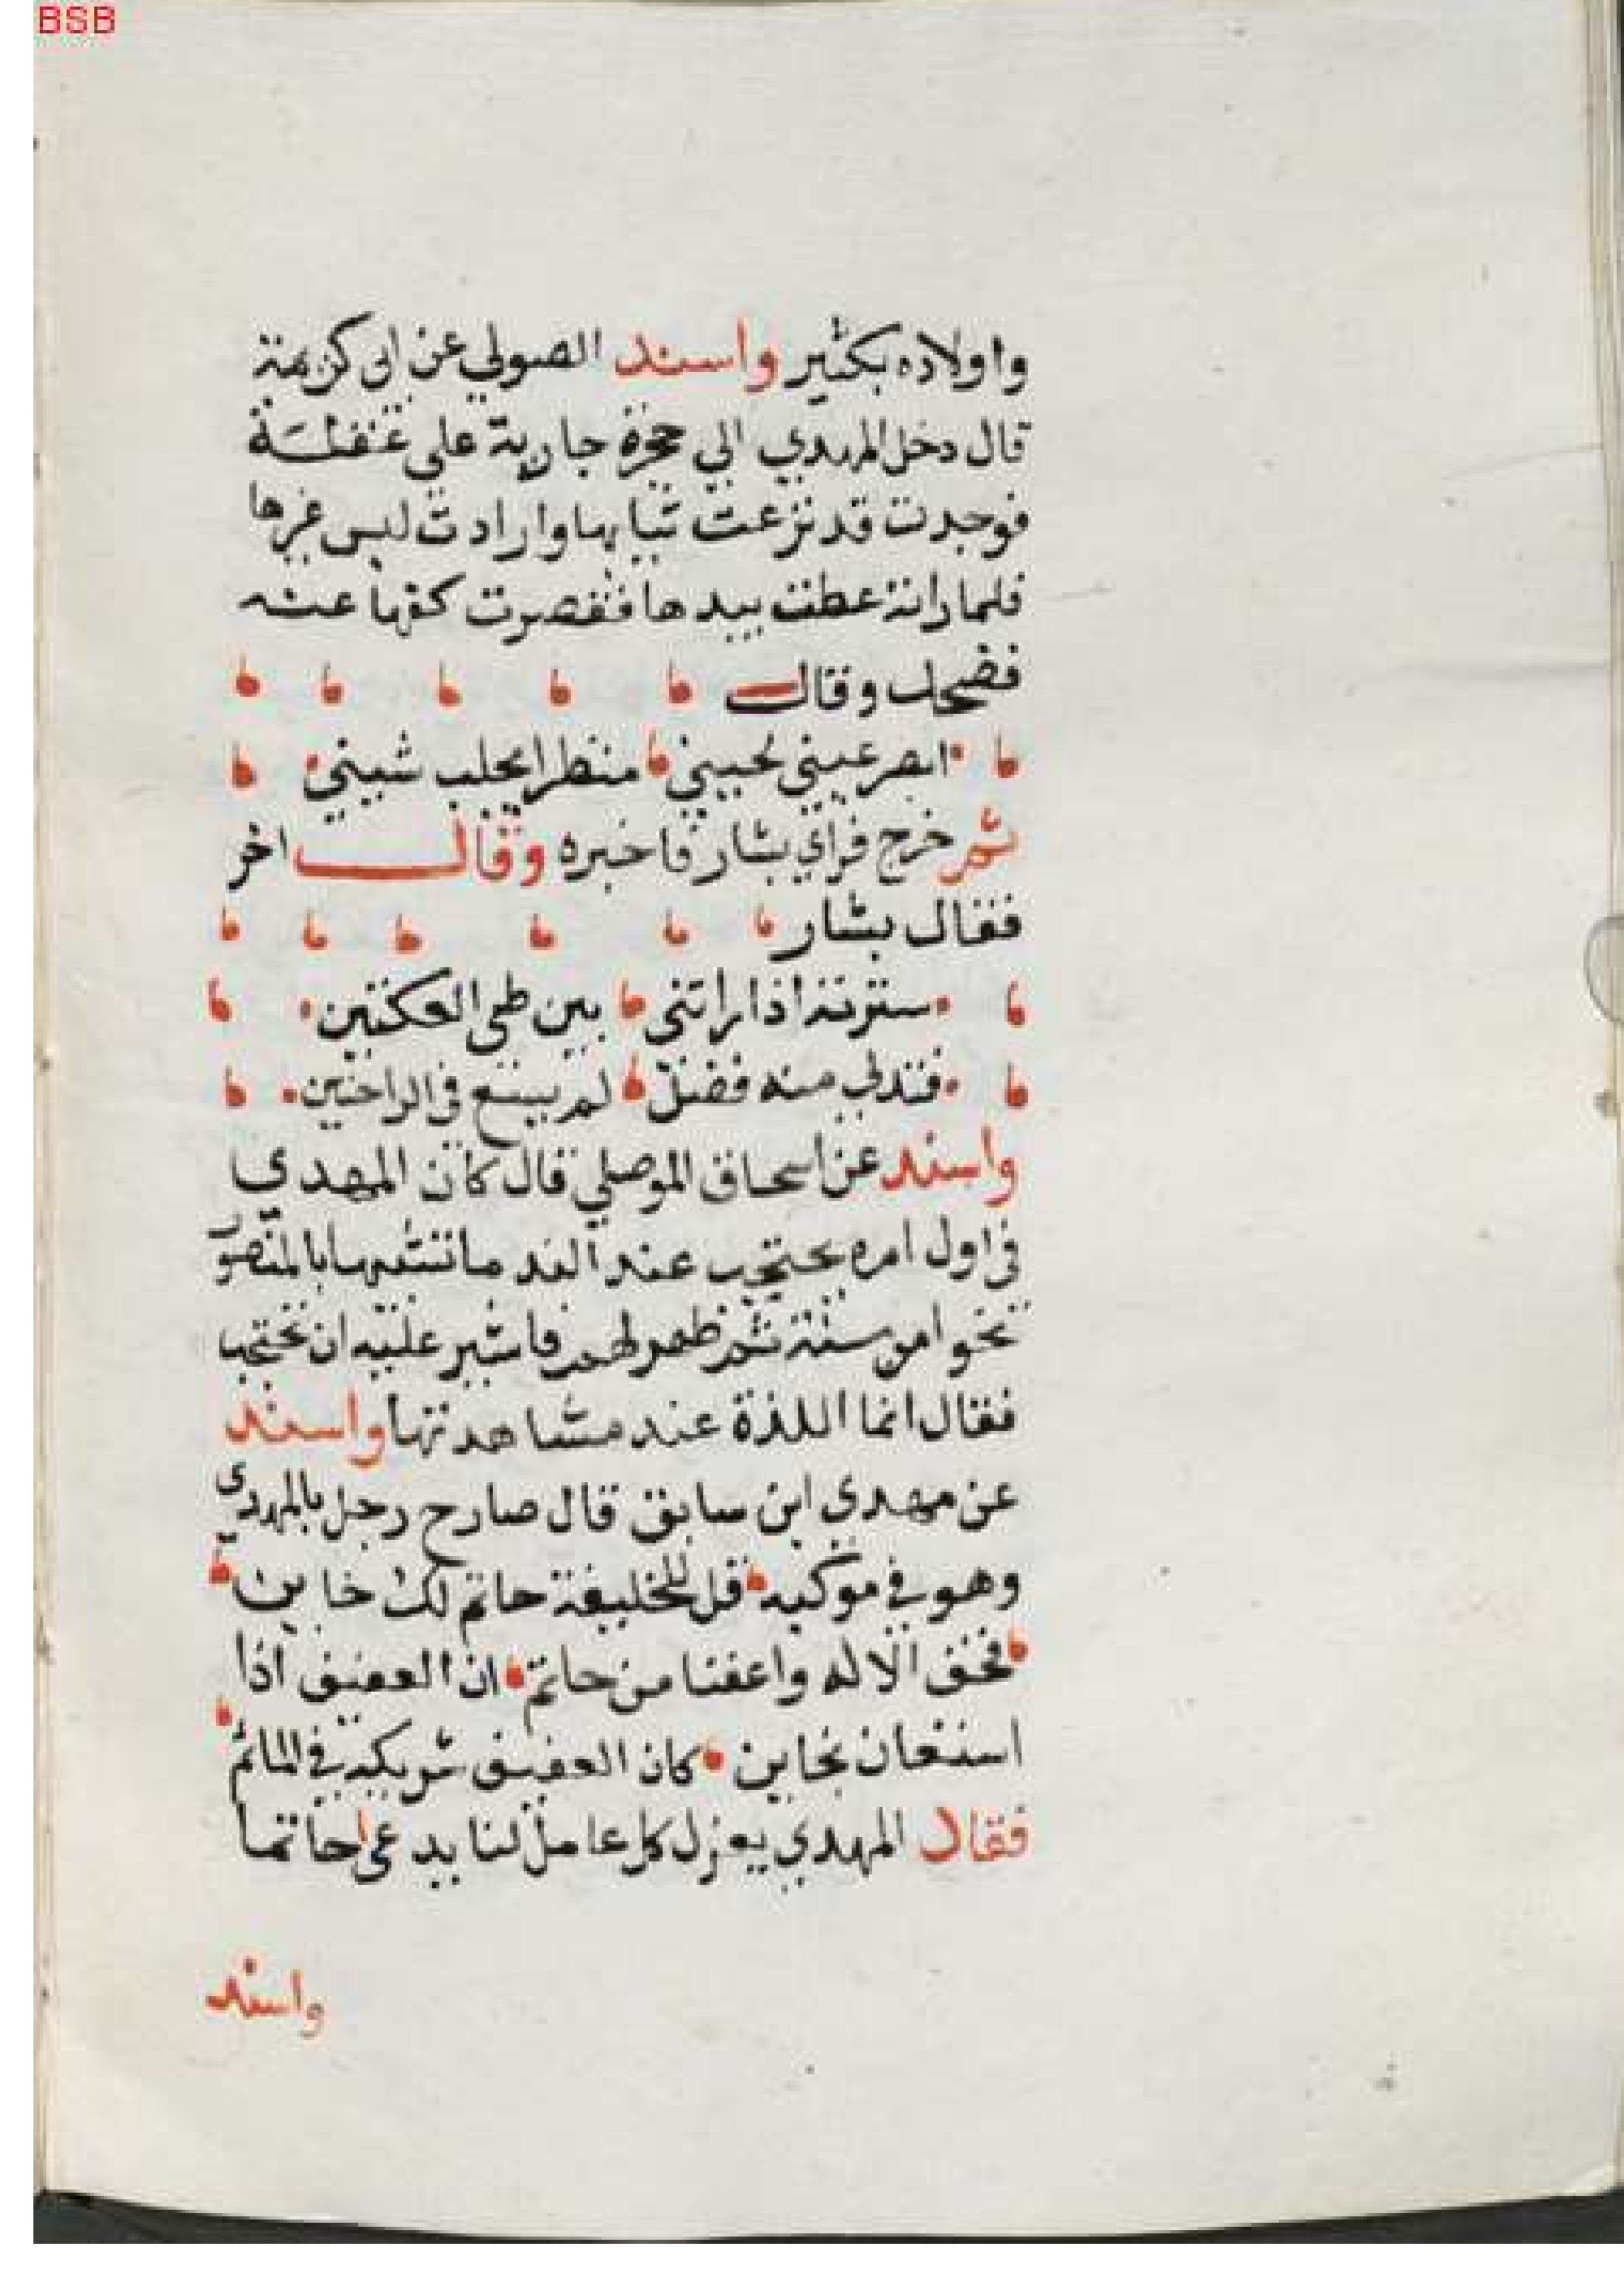 BSB
واولاده بكثير واسند الصولي عن ابى كريمة
قال دخل المهدي الي حجرة جارية على غفلة
فوجدت قد نزعت ثيابها وارادت لبس غيرها
فلما راته غطت بيدها فقصرت كفها عنه
فضحك وقال
ابصر عيني لحيني منظرا يجلب شيني
ثم خرج فراي بشار فاخبره وقال اخر
فقال بشار
سترته اذا راتنى بين طي العكنتين
فتدلي منه فضل لم يسع فى الراحتين
واسند عن اسحاق الموصلي قال كان المهدي
فى اول امره يحتجب عند الندما تشبها بالمنصو
نحوا من سنة ثم ظهر لهم فاشير عليه ان يحتجب
فقال انما اللذة عند مشاهدتها واسند
عن مهدي ابن سابق قال صارح رجل بالمهدي
وهو في موكبه قل للخليفة حاتم لك خاين
فخف الاله واعفنا من حاتم ان العفيف اذا
استعان بخاين كان العفيف شريكه في الماثم
فقال المهدي يعزل كل عامل لنا يدعى حاتما
واسند